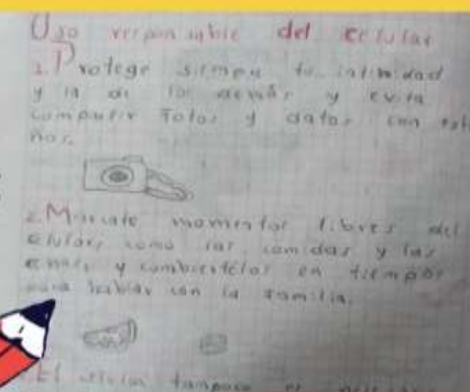 Uso responsable del celular
1. Protege siempre tu intimidad
y la de los demás y evita
compartir Fotos y datos con
ños.
2. Márcate momentos libres del
como las comidas y las
y combiertelos en tiempos
para hablar con la familia.
El celular tampoco es